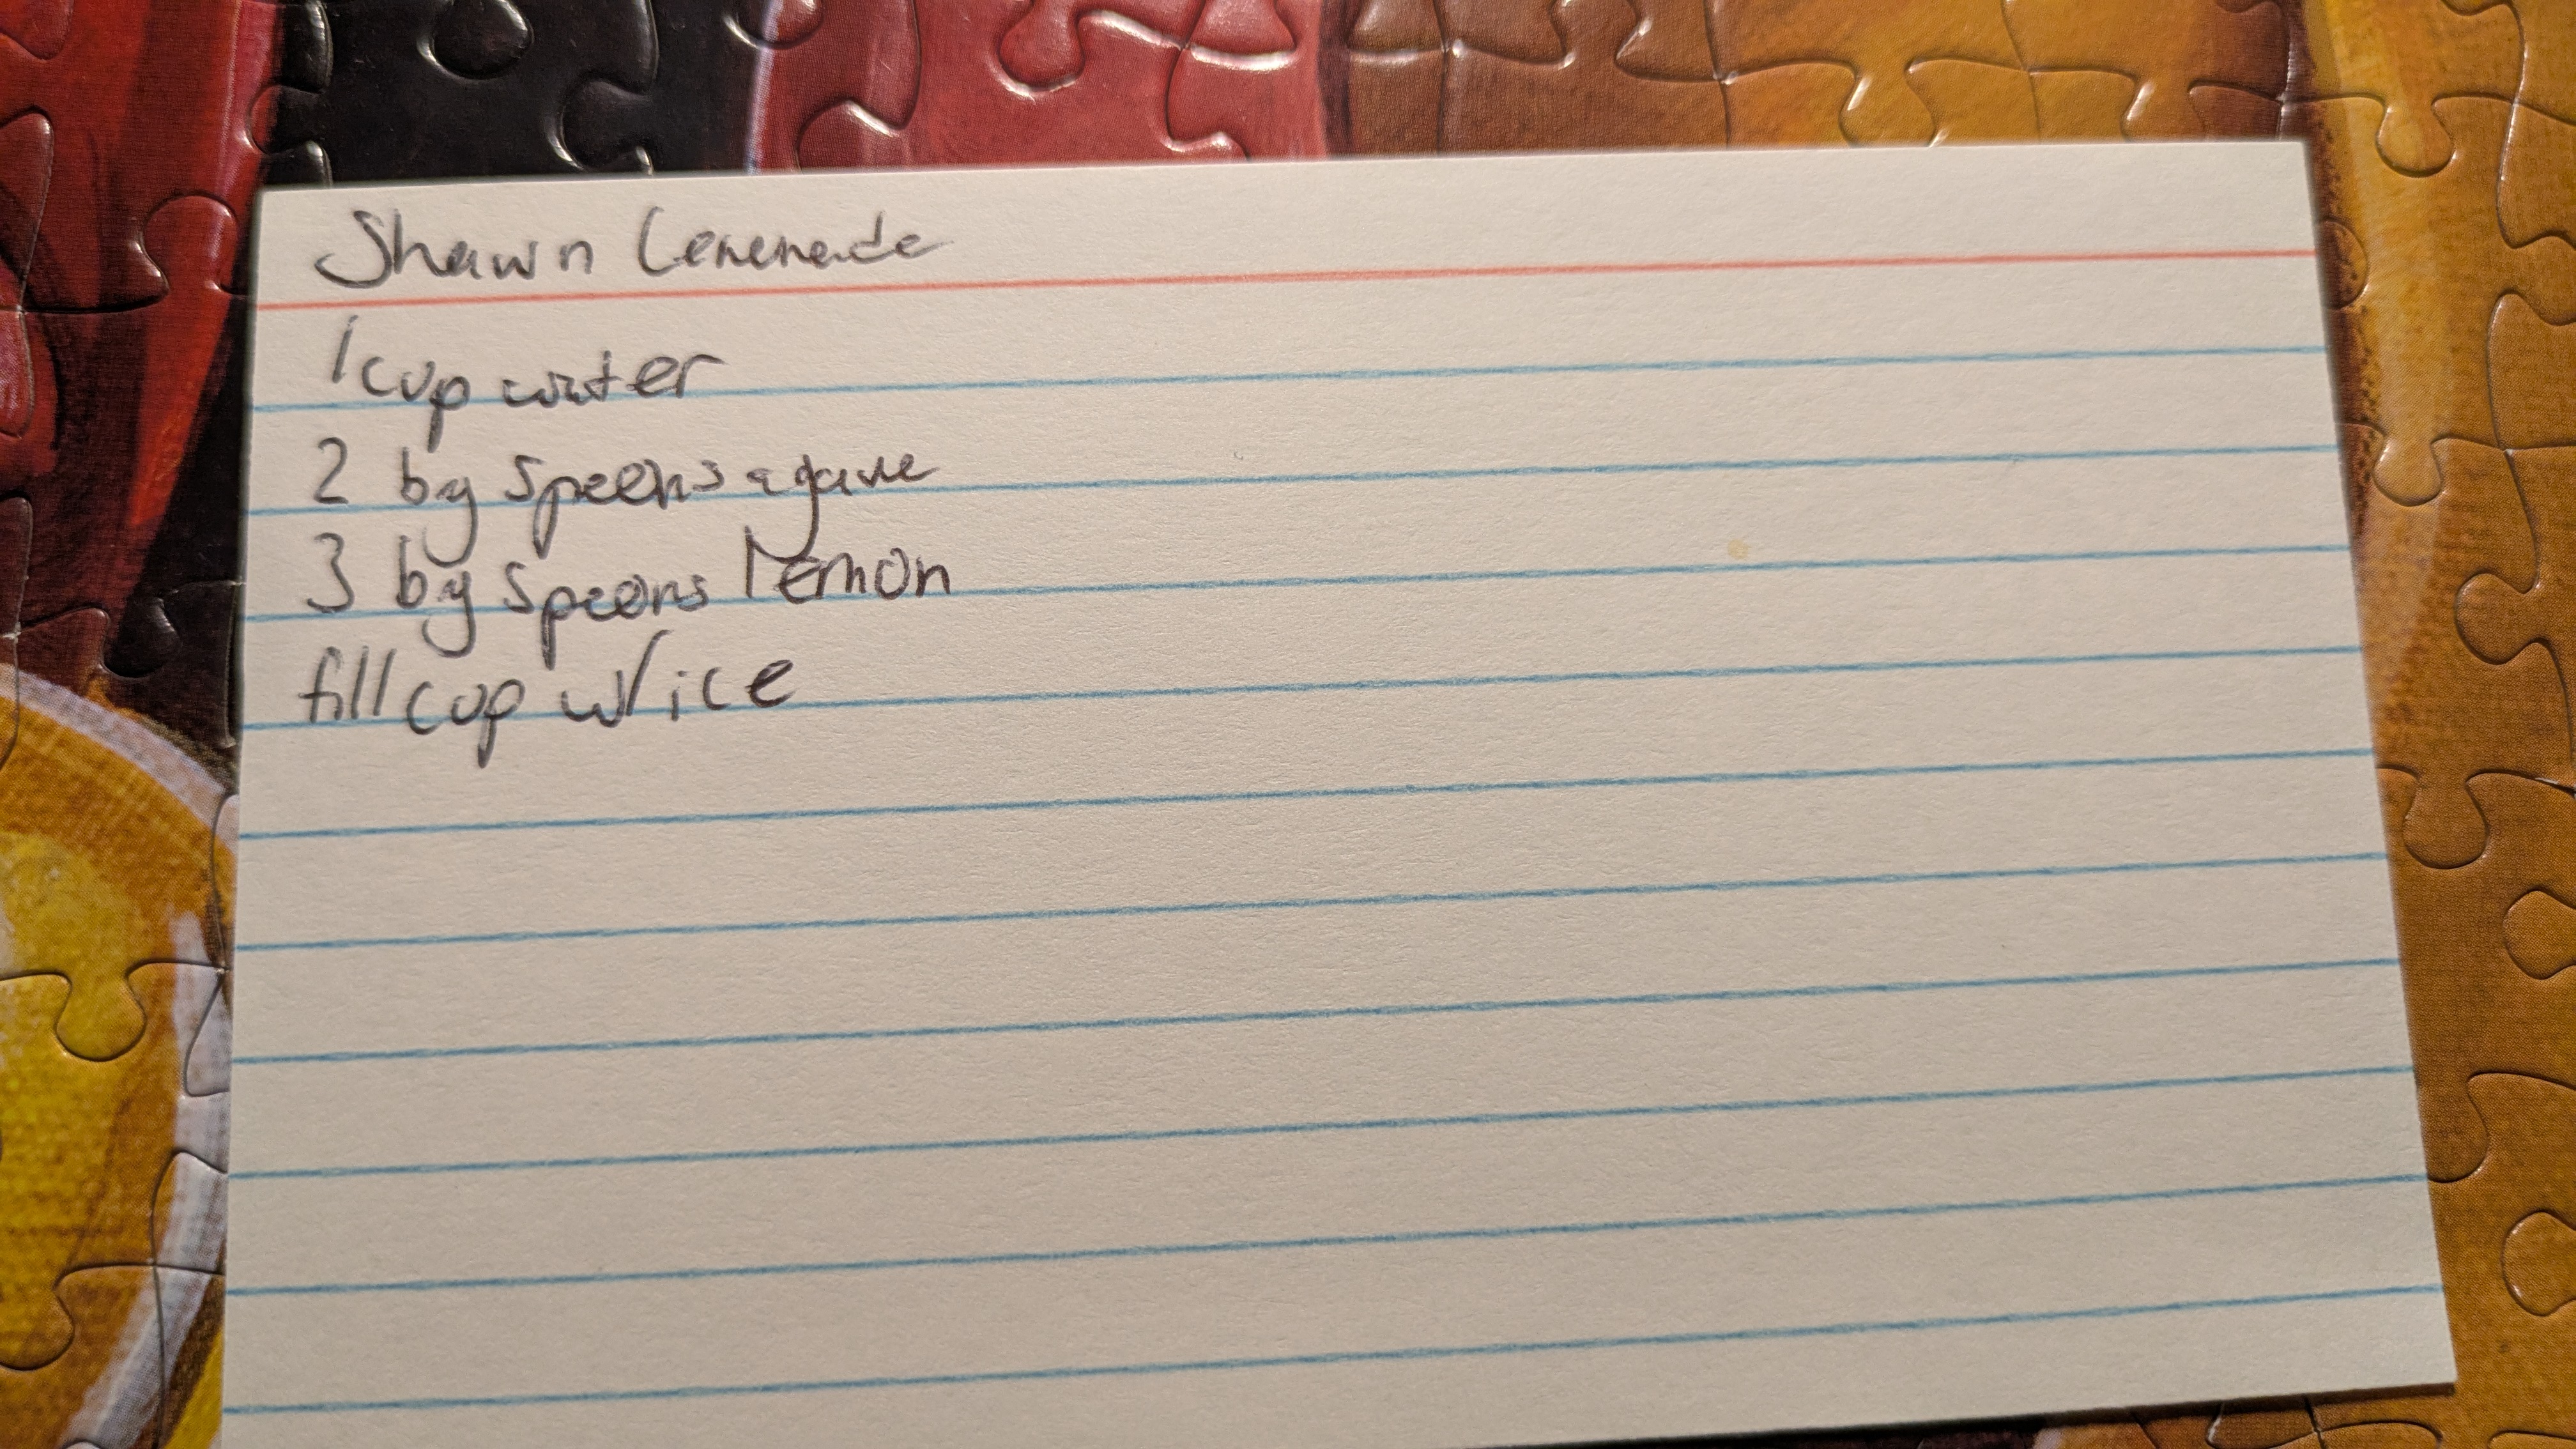 Shawn Lemenade
1 cup water
2 big spoons agave
3 big spoons lemon
fill cup w/ ice